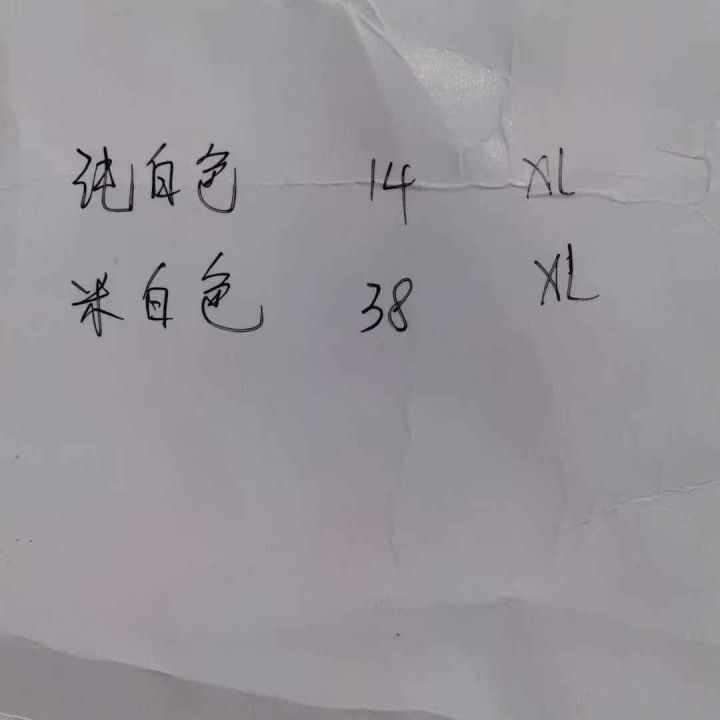 纯白色 14 XL
米白色 38 XL